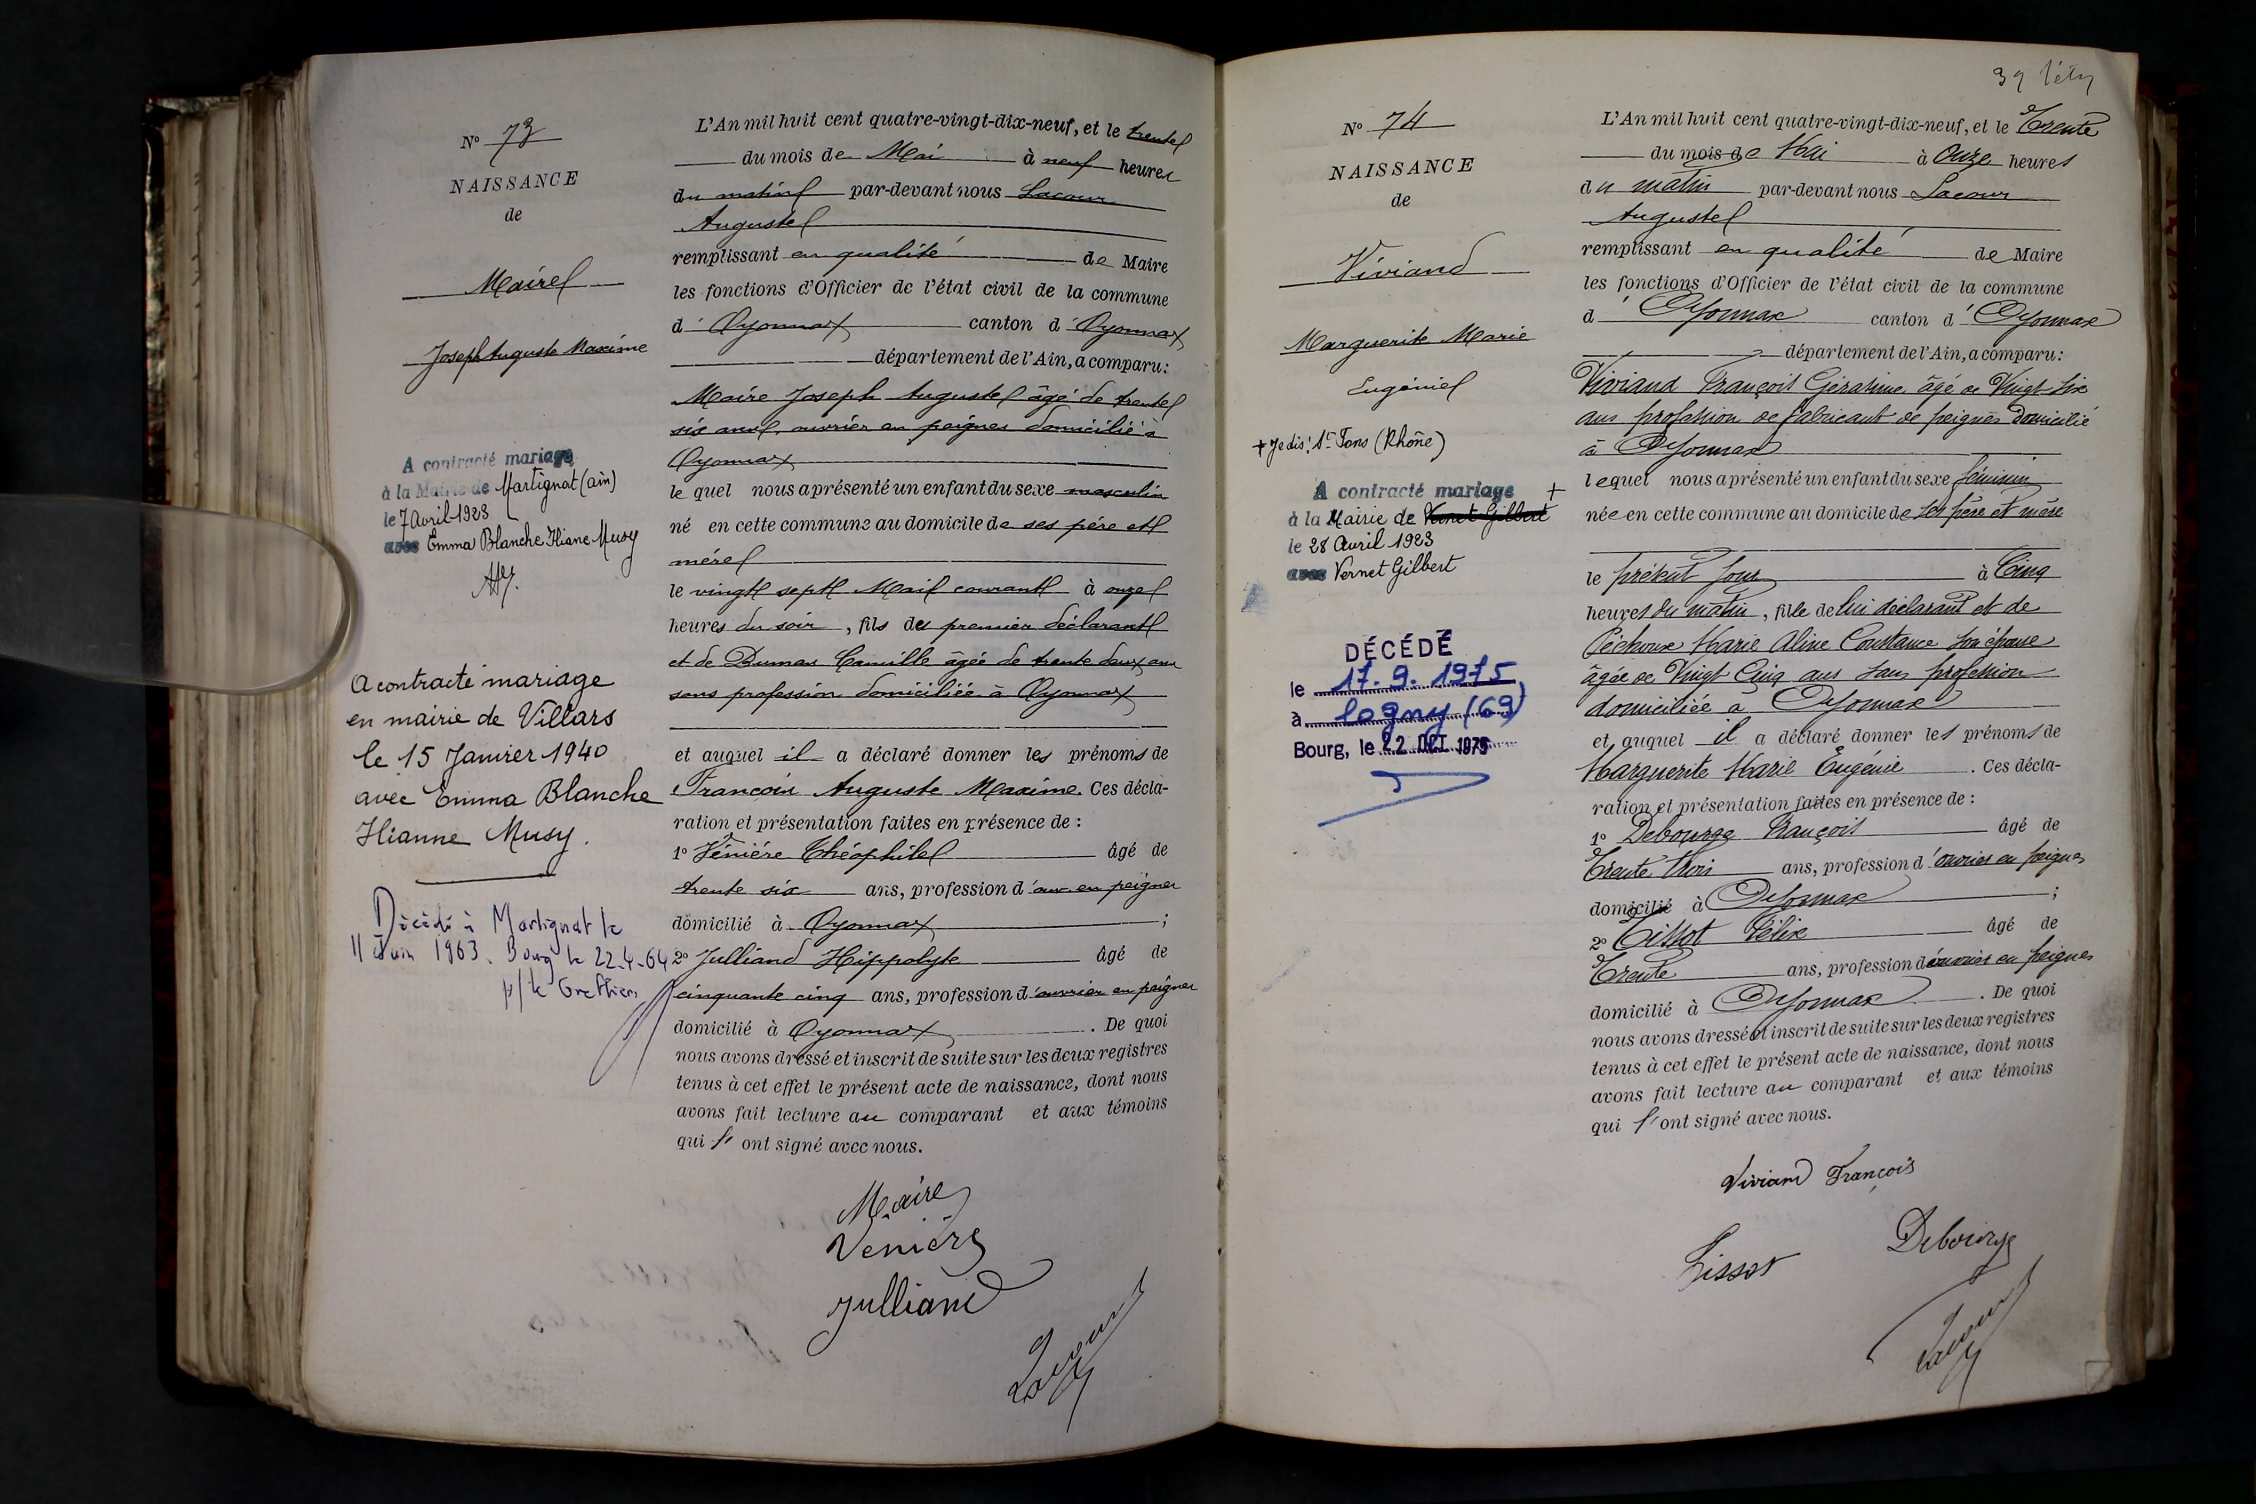 N° 73
NAISSANCE
de
Maire
Joseph Auguste Maxime
A contracté mariage
à la Mairie de Martignat (ain)
le 7 Avril 1923
avec Emma Blanche Iliane Musy
A contracté mariage
en mairie de Villars
le 15 Janvier 1940
avec Emma Blanche
Ilianne Musy.
Décédé à Martignat le
11 Juin 1963. Bourg le 22-4-64
p/le Greffier
L'An mil huit cent quatre-vingt-dix-neuf, et le trente
du mois de Mai à neuf heures
du matin par-devant nous Lacour
Auguste
remplissant en qualité de Maire
les fonctions d'Officier de l'état civil de la commune
d'Oyonnax canton d'Oyonnax
département de l'Ain, a comparu:
Maire Joseph Auguste âgé de trente
six ans, ouvrier en peignes domicilié à
Oyonnax
le quel nous a présenté un enfant du sexe masculin
né en cette commune au domicile de ses père et
mère
le vingt sept Mai courant à onze
heures du soir, fils du premier déclarant
et de Dumas Camille âgée de trente deux ans
sans profession domiciliée à Oyonnax
et auquel il a déclaré donner les prénoms de
François Auguste Maxime. Ces décla-
ration et présentation faites en présence de :
1° Vénière Théophile âgé de
trente six ans, profession d'ouv. en peignes
domicilié à Oyonnax ;
2° Julliand Hippolyte âgé de
cinquante cinq ans, profession d'ouvrier en peignes
domicilié à Oyonnax . De quoi
nous avons dressé et inscrit de suite sur les deux registres
tenus à cet effet le présent acte de naissance, dont nous
avons fait lecture au comparant et aux témoins
qui l'ont signé avec nous.
Maire
Venière
Julliand
Lacour
N° 74
NAISSANCE
de
Viviand
Marguerite Marie
Eugénie
+ Je dis: St Fons (Rhône)
A contracté mariage +
à la Mairie de Vernet Gilbert
le 28 Avril 1923
avec Vernet Gilbert
DÉCÉDÉ
le 17.9.1975
à Cogny (69)
Bourg, le 22 OCT 1975
39
L'An mil huit cent quatre-vingt-dix-neuf, et le Trente
du mois de Mai à Onze heures
du matin par-devant nous Lacour
Auguste
remplissant en qualité de Maire
les fonctions d'Officier de l'état civil de la commune
d'Oyonnax canton d'Oyonnax
département de l'Ain, a comparu:
Viviand François Gérasime âgé de Vingt six
ans profession de fabricant de peignes domicilié
à Oyonnax
lequel nous a présenté un enfant du sexe féminin
née en cette commune au domicile de ses père et mère
le présent jour à Cinq
heures du matin, fille de lui déclarant et de
Péchoux Marie Aline Constance son épouse
âgée de Vingt Cinq ans sans profession
domiciliée à Oyonnax
et auquel il a déclaré donner les prénoms de
Marguerite Marie Eugénie . Ces décla-
ration et présentation faites en présence de :
1° Debourge François âgé de
Trente trois ans, profession d'ouvrier en peignes
domicilié à Oyonnax ;
2° Tissot Félix âgé de
Trente ans, profession d'ouvrier en peignes
domicilié à Oyonnax . De quoi
nous avons dressé et inscrit de suite sur les deux registres
tenus à cet effet le présent acte de naissance, dont nous
avons fait lecture au comparant et aux témoins
qui l'ont signé avec nous.
Viviand François
Debourge
Tissot
Lacour